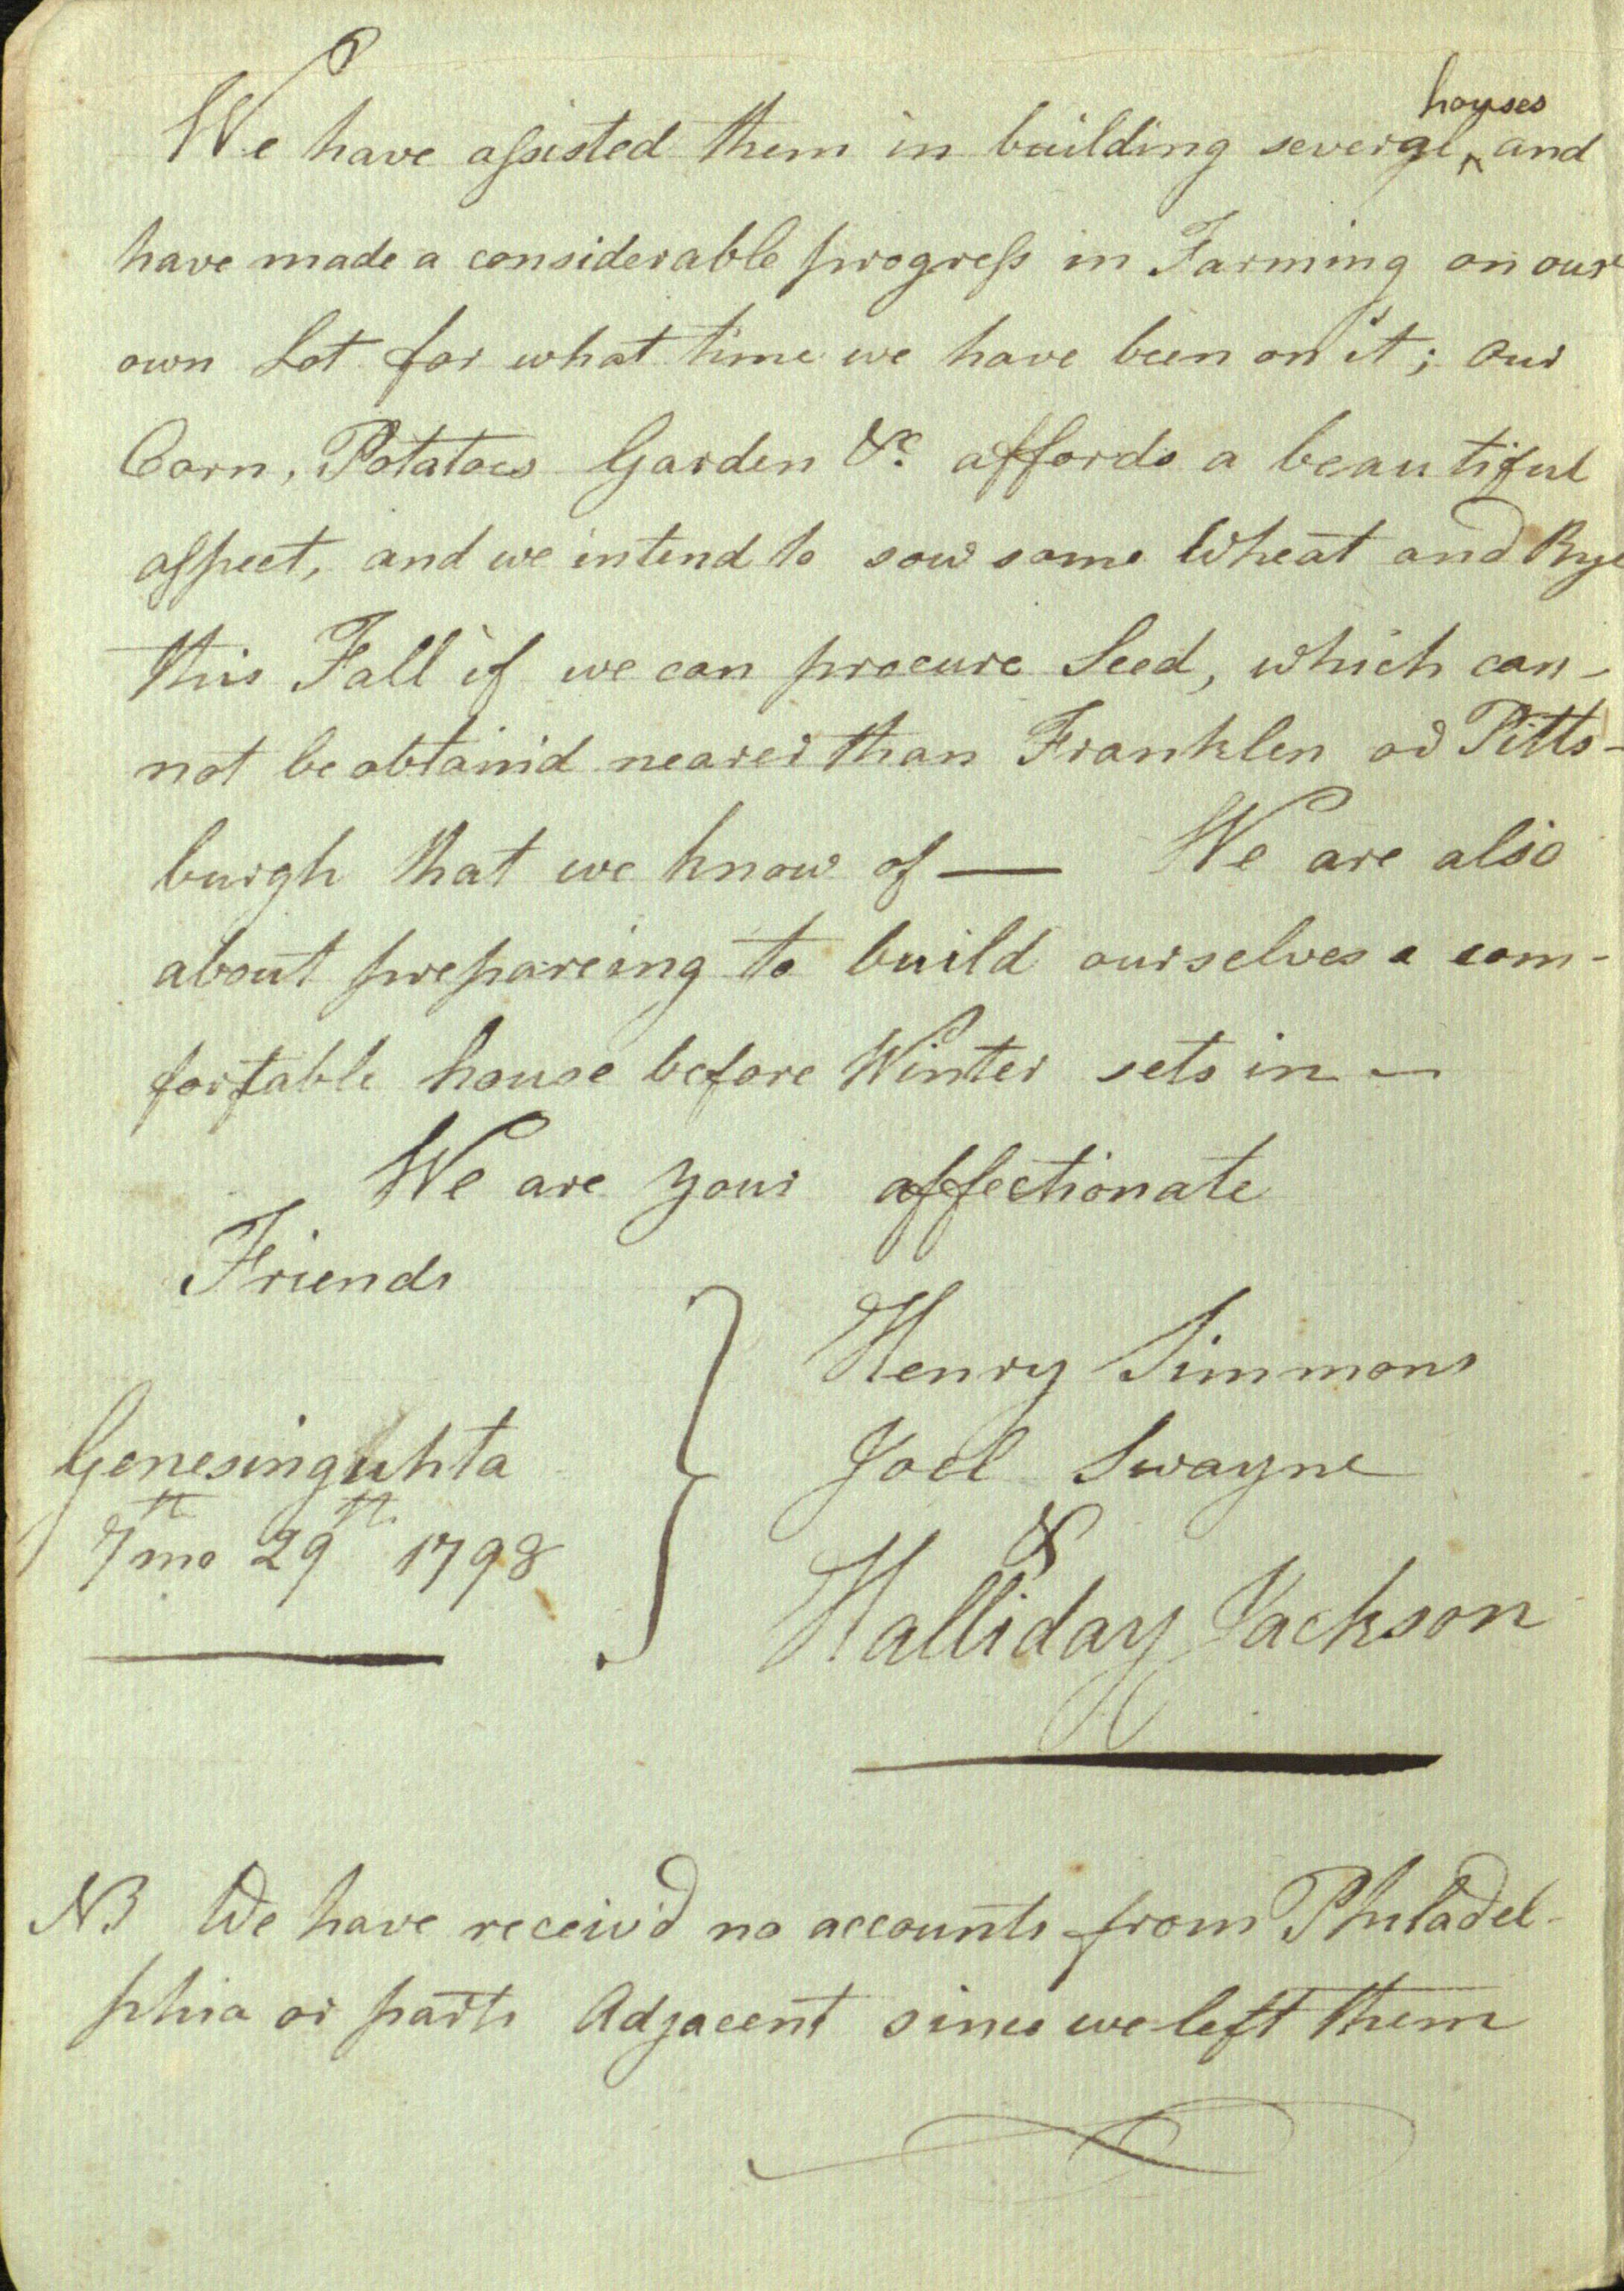 houses
We have assisted them in building several ^ and
have made a considerable progress in Farming on our
own Lot for what time we have been on it; our
Corn, Potatoes Garden &c. affords a beautiful
aspect, and we intend to sow some Wheat and Rye
this Fall if we can procure Seed, which can-
not be obtain'd nearer than Franklen or Pitts-
burgh that we know of — We are also
about prepareing to build ourselves a com-
fortable house before Winter sets in —
We are your affectionate
Friends
Henry Simmons
Joel Swayne
&
Halliday Jackson
Genesinguhta
7th mo 29th 1798
NB We have receiv'd no accounts from Philadel-
phia or parts Adjacent since we left them